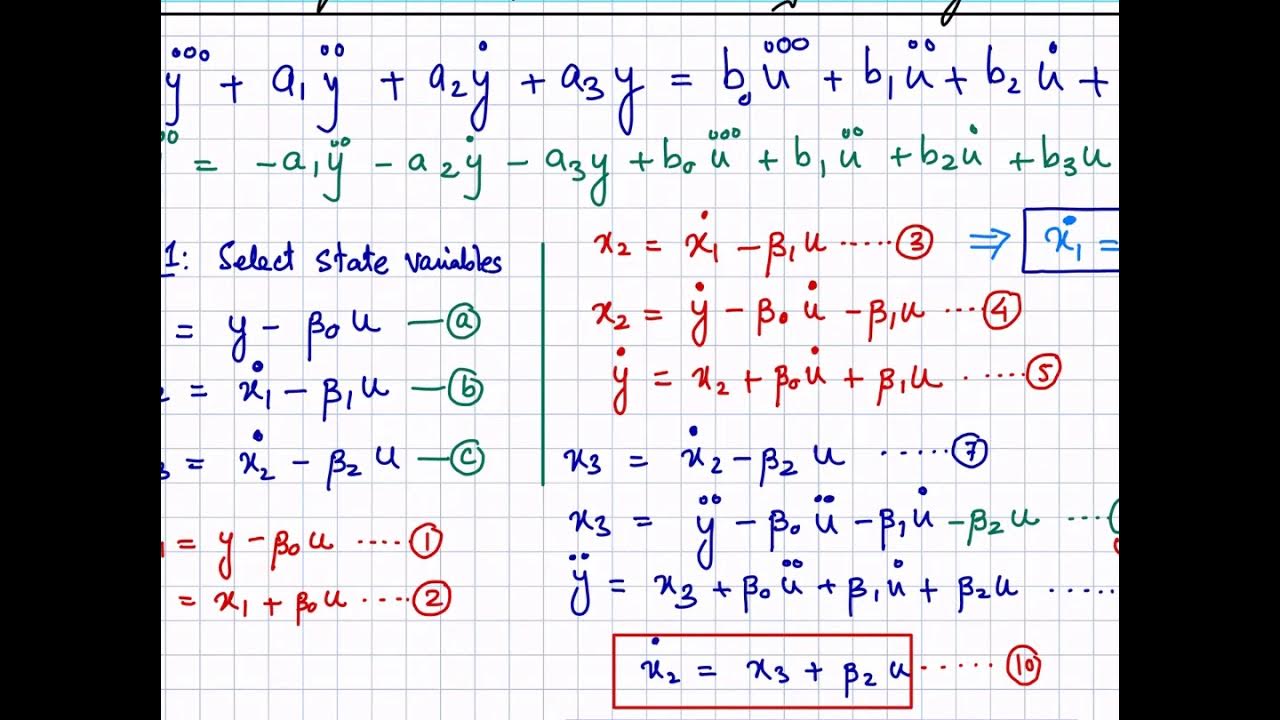 y⃛ + a₁ÿ + a₂ẏ + a₃y = b₀u⃛ + b₁ü + b₂u̇ +
= -a₁ÿ - a₂ẏ - a₃y + b₀u⃛ + b₁ü + b₂u̇ + b₃u
1: Select state variables
= y - β₀u — ⓐ
₂ = ẋ₁ - β₁u — ⓑ
₃ = ẋ₂ - β₂u — ⓒ
₁ = y - β₀u ····①
= x₁ + β₀u ····②
x₂ = ẋ₁ - β₁u ·····③ ⇒ ẋ₁ =
x₂ = ẏ - β₀u̇ - β₁u ····④
ẏ = x₂ + β₀u̇ + β₁u ·····⑤
x₃ = ẋ₂ - β₂u ·····⑦
x₃ = ÿ - β₀ü - β₁u̇ - β₂u ····
ÿ = x₃ + β₀ü + β₁u̇ + β₂u ·····
ẋ₂ = x₃ + β₂u ······⑩